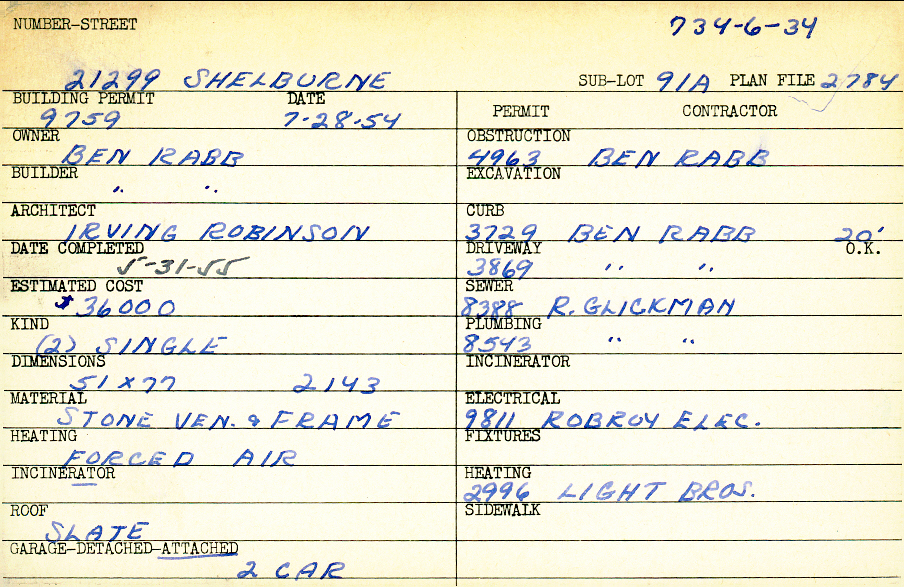 NUMBER-STREET
734-6-34
21299 SHELBURNE
SUB-LOT 91A PLAN FILE 2784
BUILDING PERMIT DATE
9759 7-28-54
OWNER
BEN RABB
BUILDER
" "
ARCHITECT
IRVING ROBINSON
DATE COMPLETED
5-31-55
ESTIMATED COST
$36000
KIND
(2) SINGLE
DIMENSIONS
51 X 77 2143
MATERIAL
STONE VEN. & FRAME
HEATING
FORCED AIR
INCINERATOR
ROOF
SLATE
GARAGE-DETACHED-ATTACHED
2 CAR
PERMIT CONTRACTOR
OBSTRUCTION
4963 BEN RABB
EXCAVATION
CURB
3729 BEN RABB 20'
DRIVEWAY O.K.
3869 " "
SEWER
8388 R. GLICKMAN
PLUMBING
8543 " "
INCINERATOR
ELECTRICAL
9811 ROBROY ELEC.
FIXTURES
HEATING
2996 LIGHT BROS.
SIDEWALK